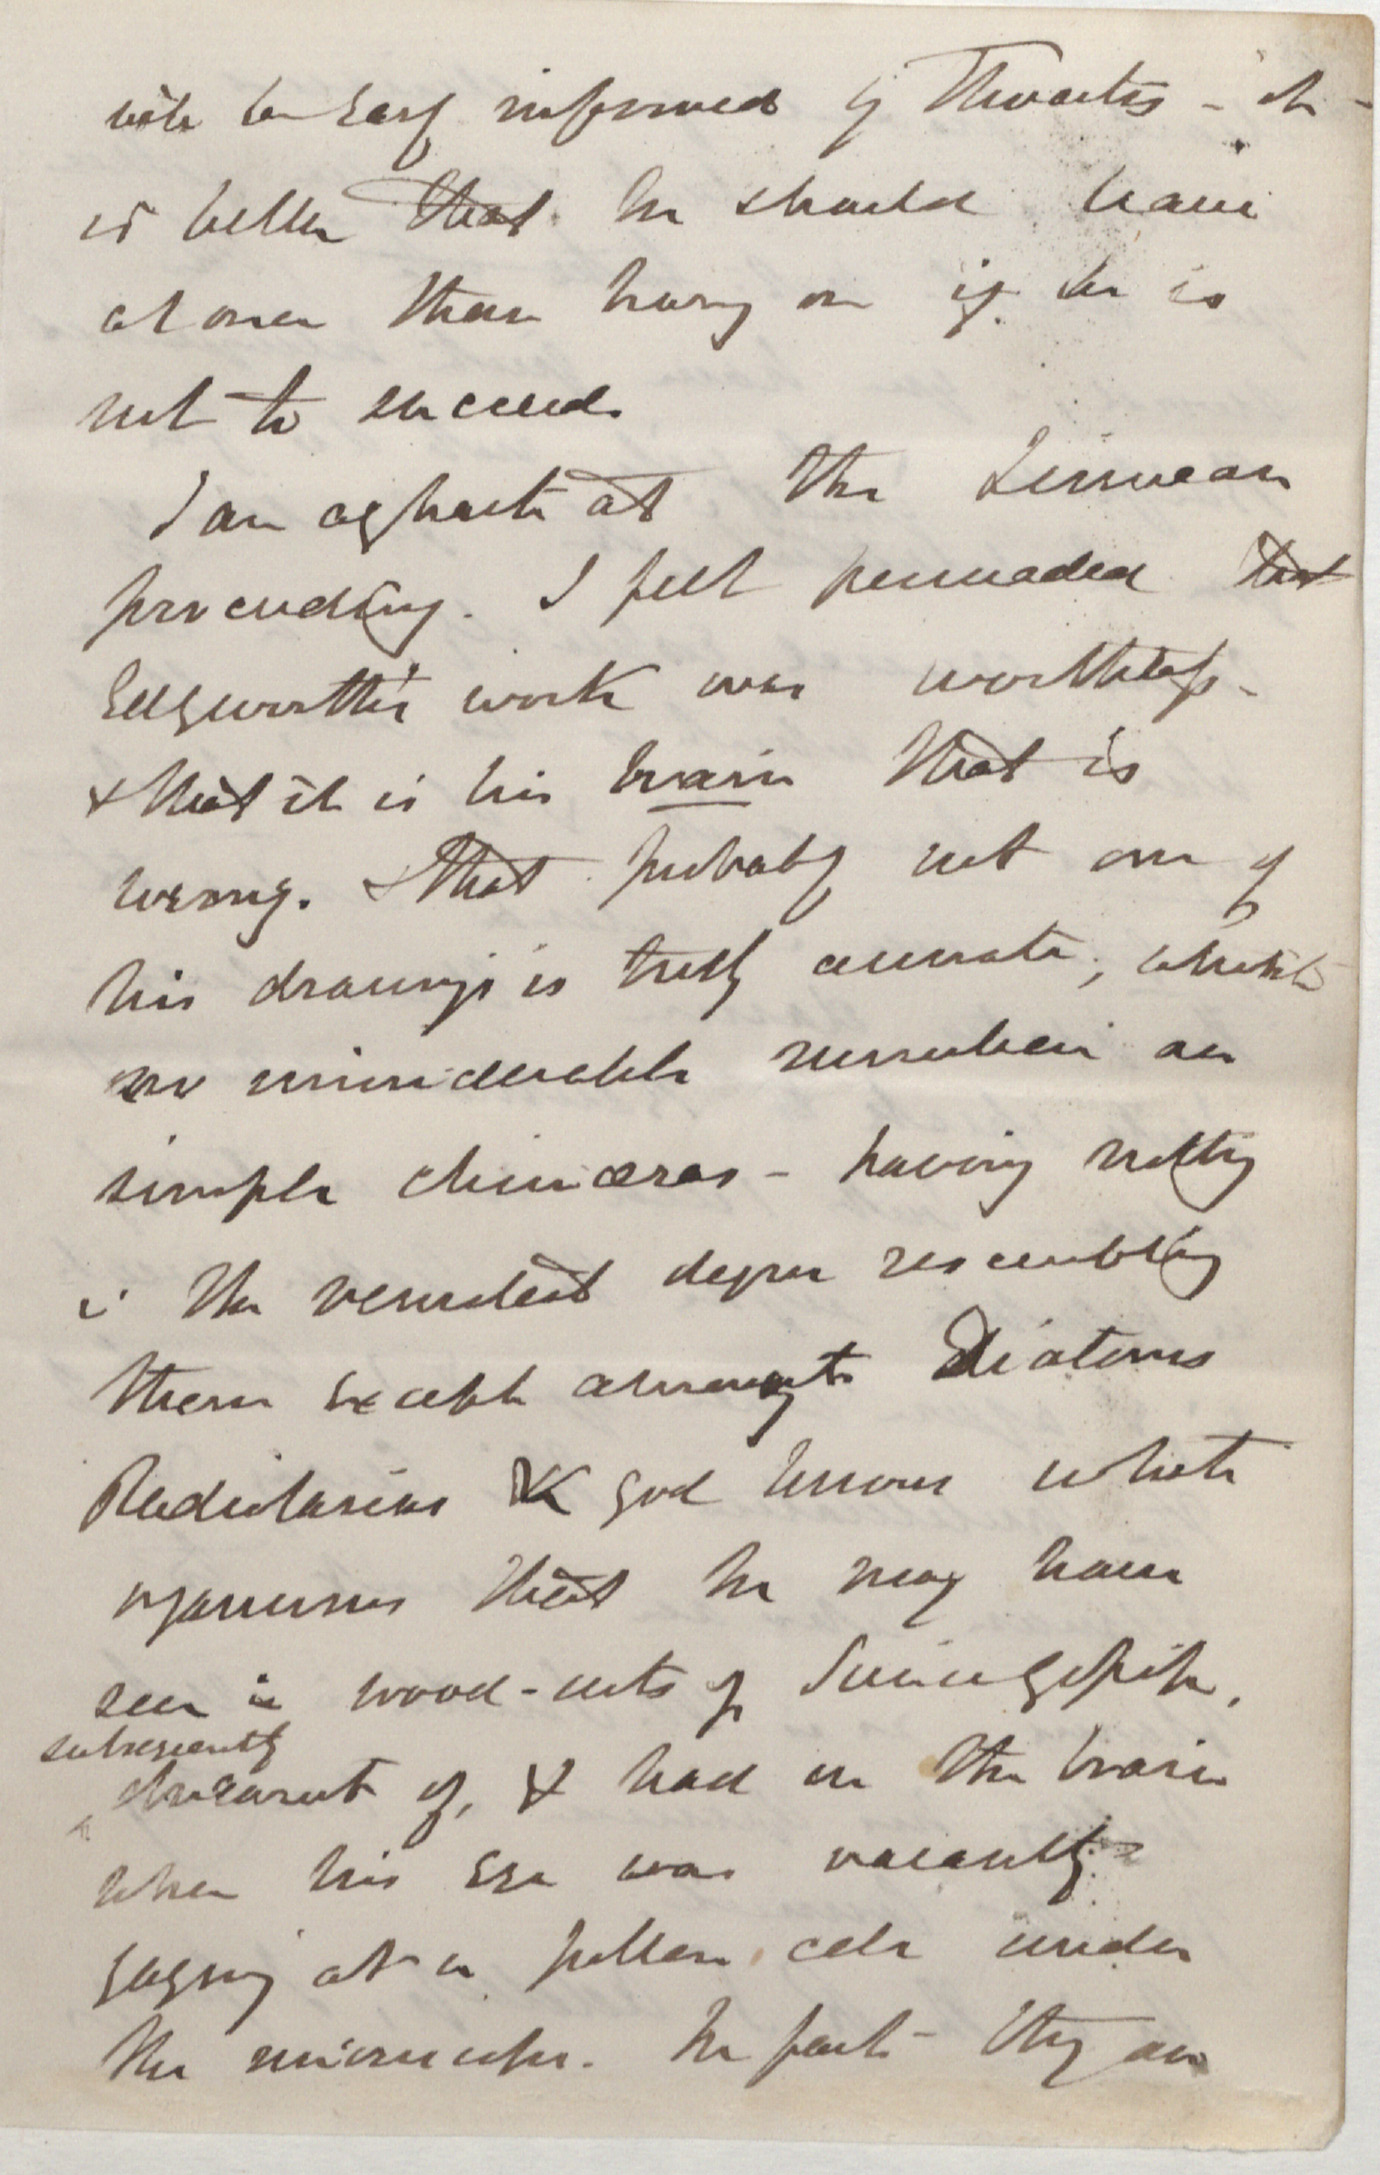 will be early informed by Thwaites – it
is better that he should leave
at once than hang on if he is
not to succeed.
I am aghast at the Linnean
proceeding. I felt persuaded that
Edgworth's work was worthless –
& that it is his brain that is
wrong. & that probably not one of
his drawings is truly accurate; whilst
innumerable are
simple chimæras – having nothing
in the remotest degree resembling
them except amongst Diatoms
Radiolarias & God knows what
organisms that he may have
seen in wood-cuts of Science Gossip,
subsequently
dreamt of, & had on the brain
when his eye was vacantly
gazing at a pollen cell under
the microscope. In fact they are